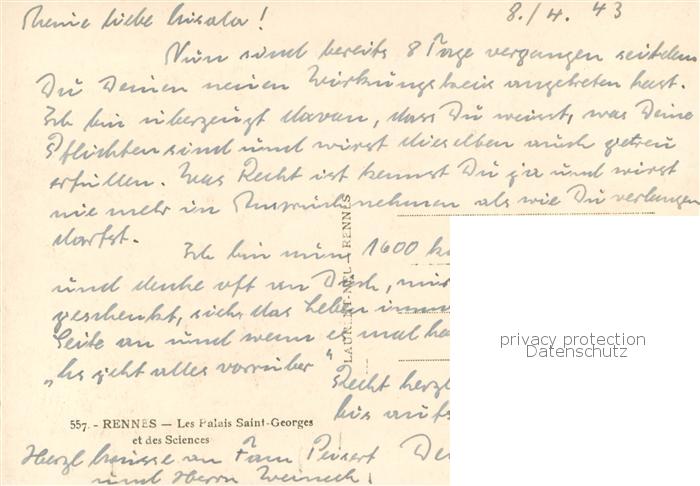 Meine liebe Ursula! 8./4. 43
Nun sind bereits 8 Tage vergangen seitdem
Du Deinen neuen Wirkungskreis angetreten hast.
Ich bin überzeugt davon, dass Du weisst, was Deine
Pflichten sind und wirst dieselben auch getreu
erfüllen. Was Recht ist kennst Du ja und wirst
nie mehr in Anspruch nehmen als wie Du verlangen
darfst.
Ich bin nun 1600
und denke oft an Dich,
geschenkt, sieh das Leben
Seite an und wenn es mal
„Es geht alles vorrüber"
Recht herzl
bis aufs
LAURENT-NEL - RENNES
privacy protection
Datenschutz
557. - RENNES — Les Palais Saint-Georges
et des Sciences
Herzl Grüsse an Fam
und Herrn